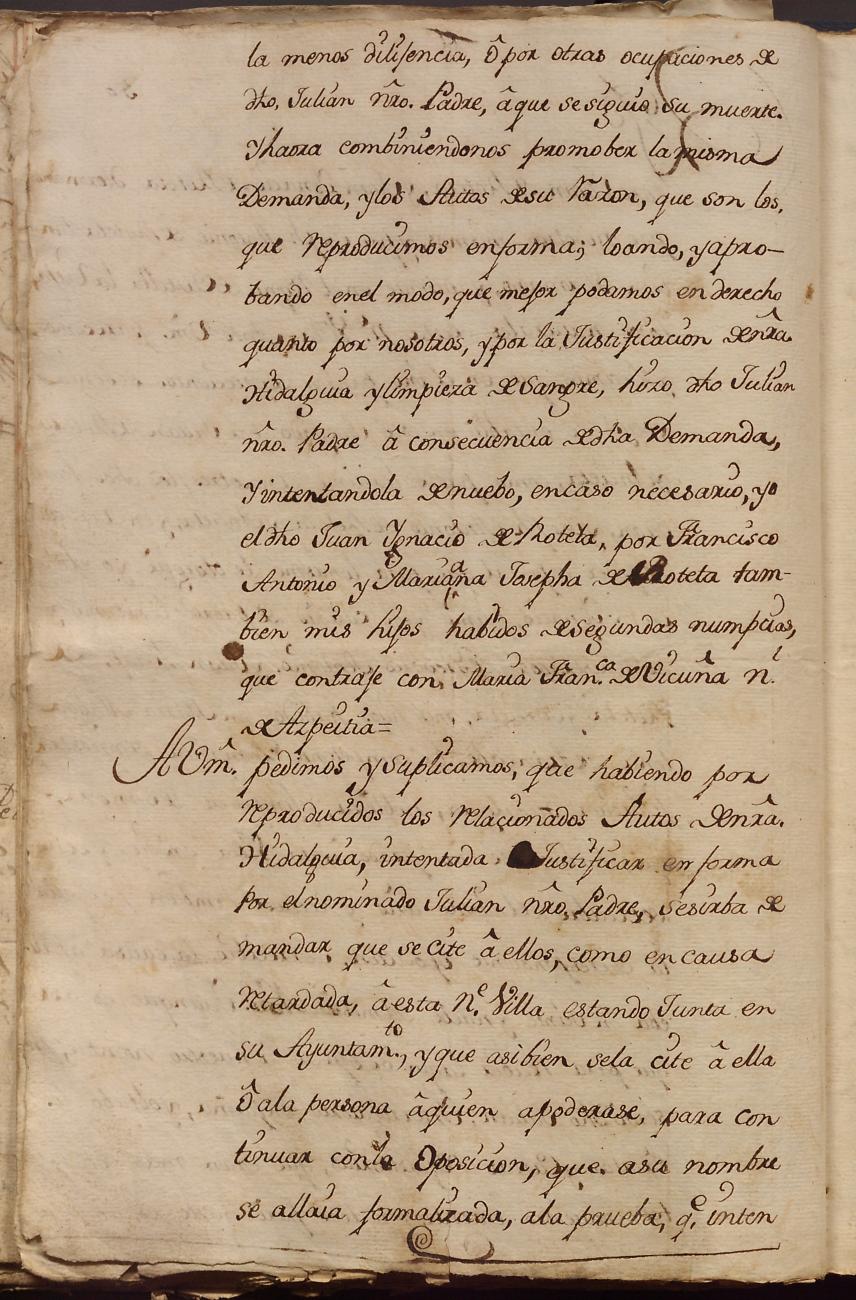 la menos dilisencia, ô por otras ocupaciones de
dho, Julian nr̃o. Padre, â que se siguio su muerte.
Yhaora combiniendonos promober la misma
Demanda, y los Autos de su Razon, que son los,
que reproducimos en forma; loando, y apro-
bando en el modo, que mejor podamos en derecho
quanto por nosotros, y por la Justificacion de nr̃a.
Hidalguia y limpieza de Sangre, hizo dho Julian
nr̃o. Padre â consecuencia de dha Demanda,
Y intentandola de nuebo, en caso necesario, yo
el dho Juan Ygnacio de Roteta, por Francisco
Antonio y Mariana Josepha de Roteta tam-
bien mis hijos habidos de segundas numpcias,
que contraje con Maria Fran.ca de Vicuña n.l
de Azpeitia=
A Vm̃. pedimos y suplicamos; que habiendo por
reproducidos los relacionados Autos de nr̃a.
Hidalguia, intentada Justificar en forma
Por el nominado Julian nr̃o. Padre, se sirba de
mandar que se cite â ellos, como en causa
retardada, â esta N.e Villa estando Junta en
su Ayuntam.to, y que asibien sela cite â ella
Ô ala persona âquien apoderase, para con
tinuar con la Oposicion, que asu nombre
se allaia formalizada, ala prueba, q.e inten